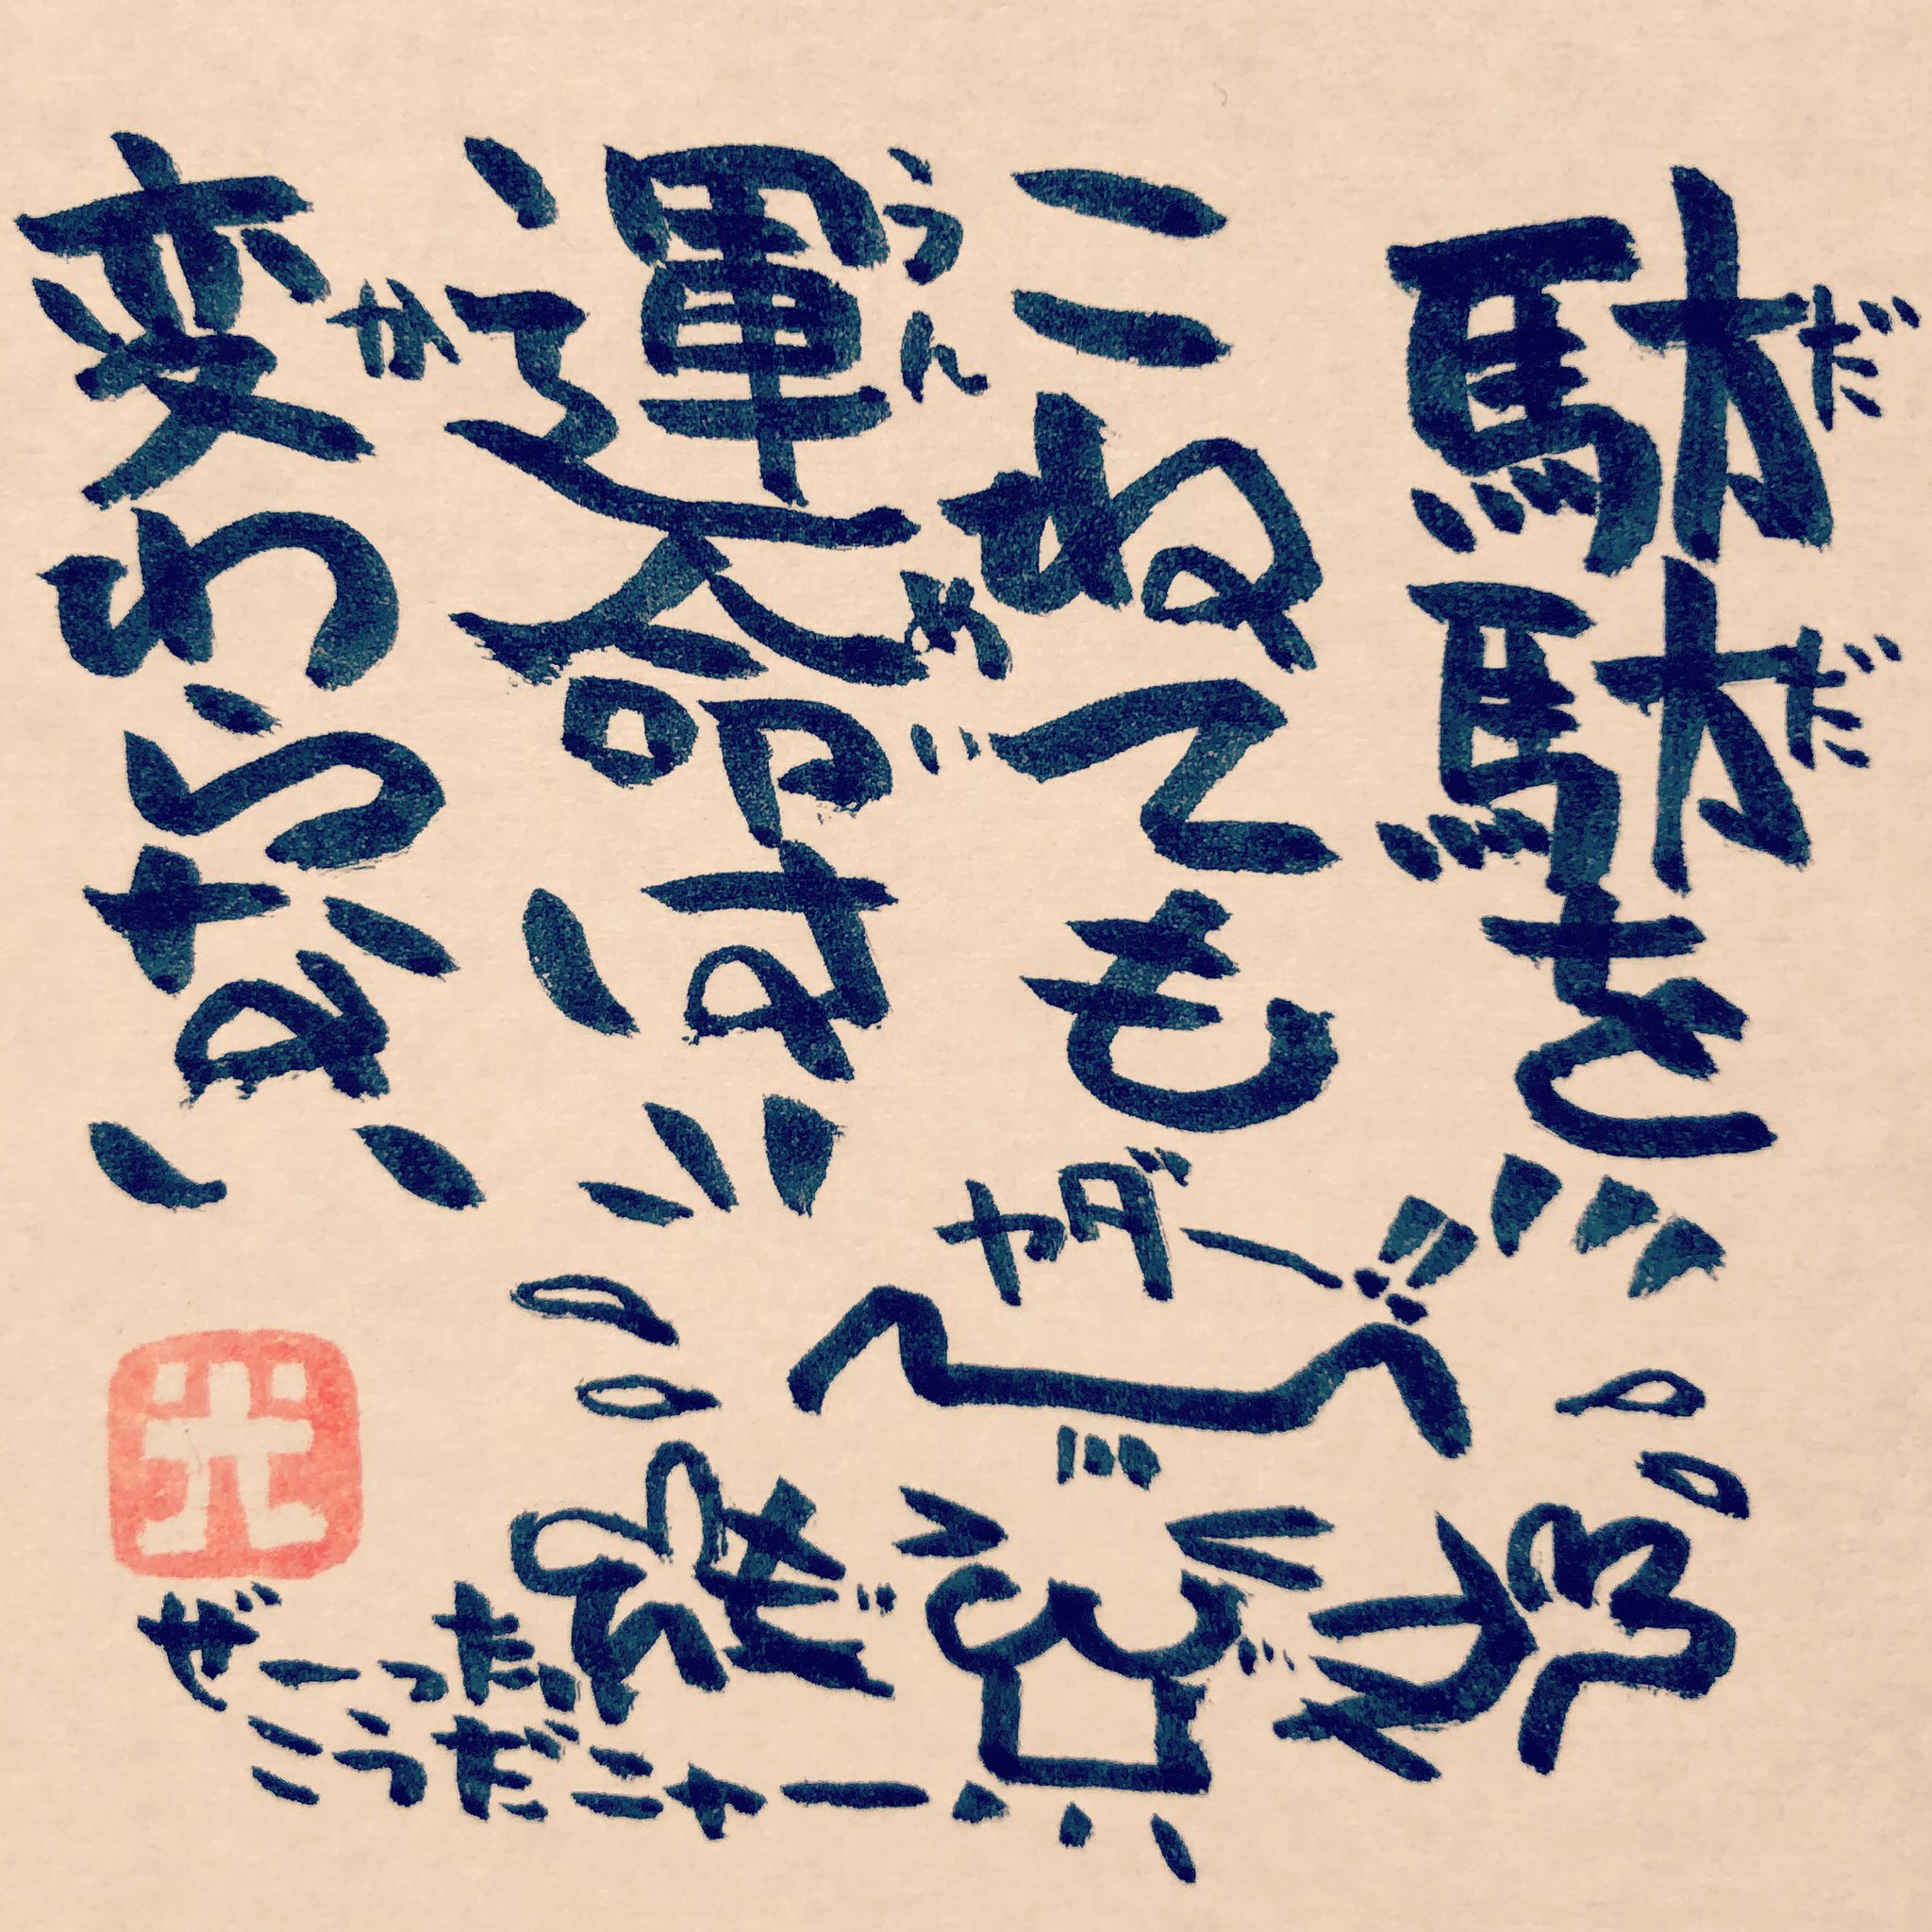 駄駄を
だだ
こねても
運命は
うんめい
変わらない
か
ヤダー!!
ぜーったい
こうだニャー
光